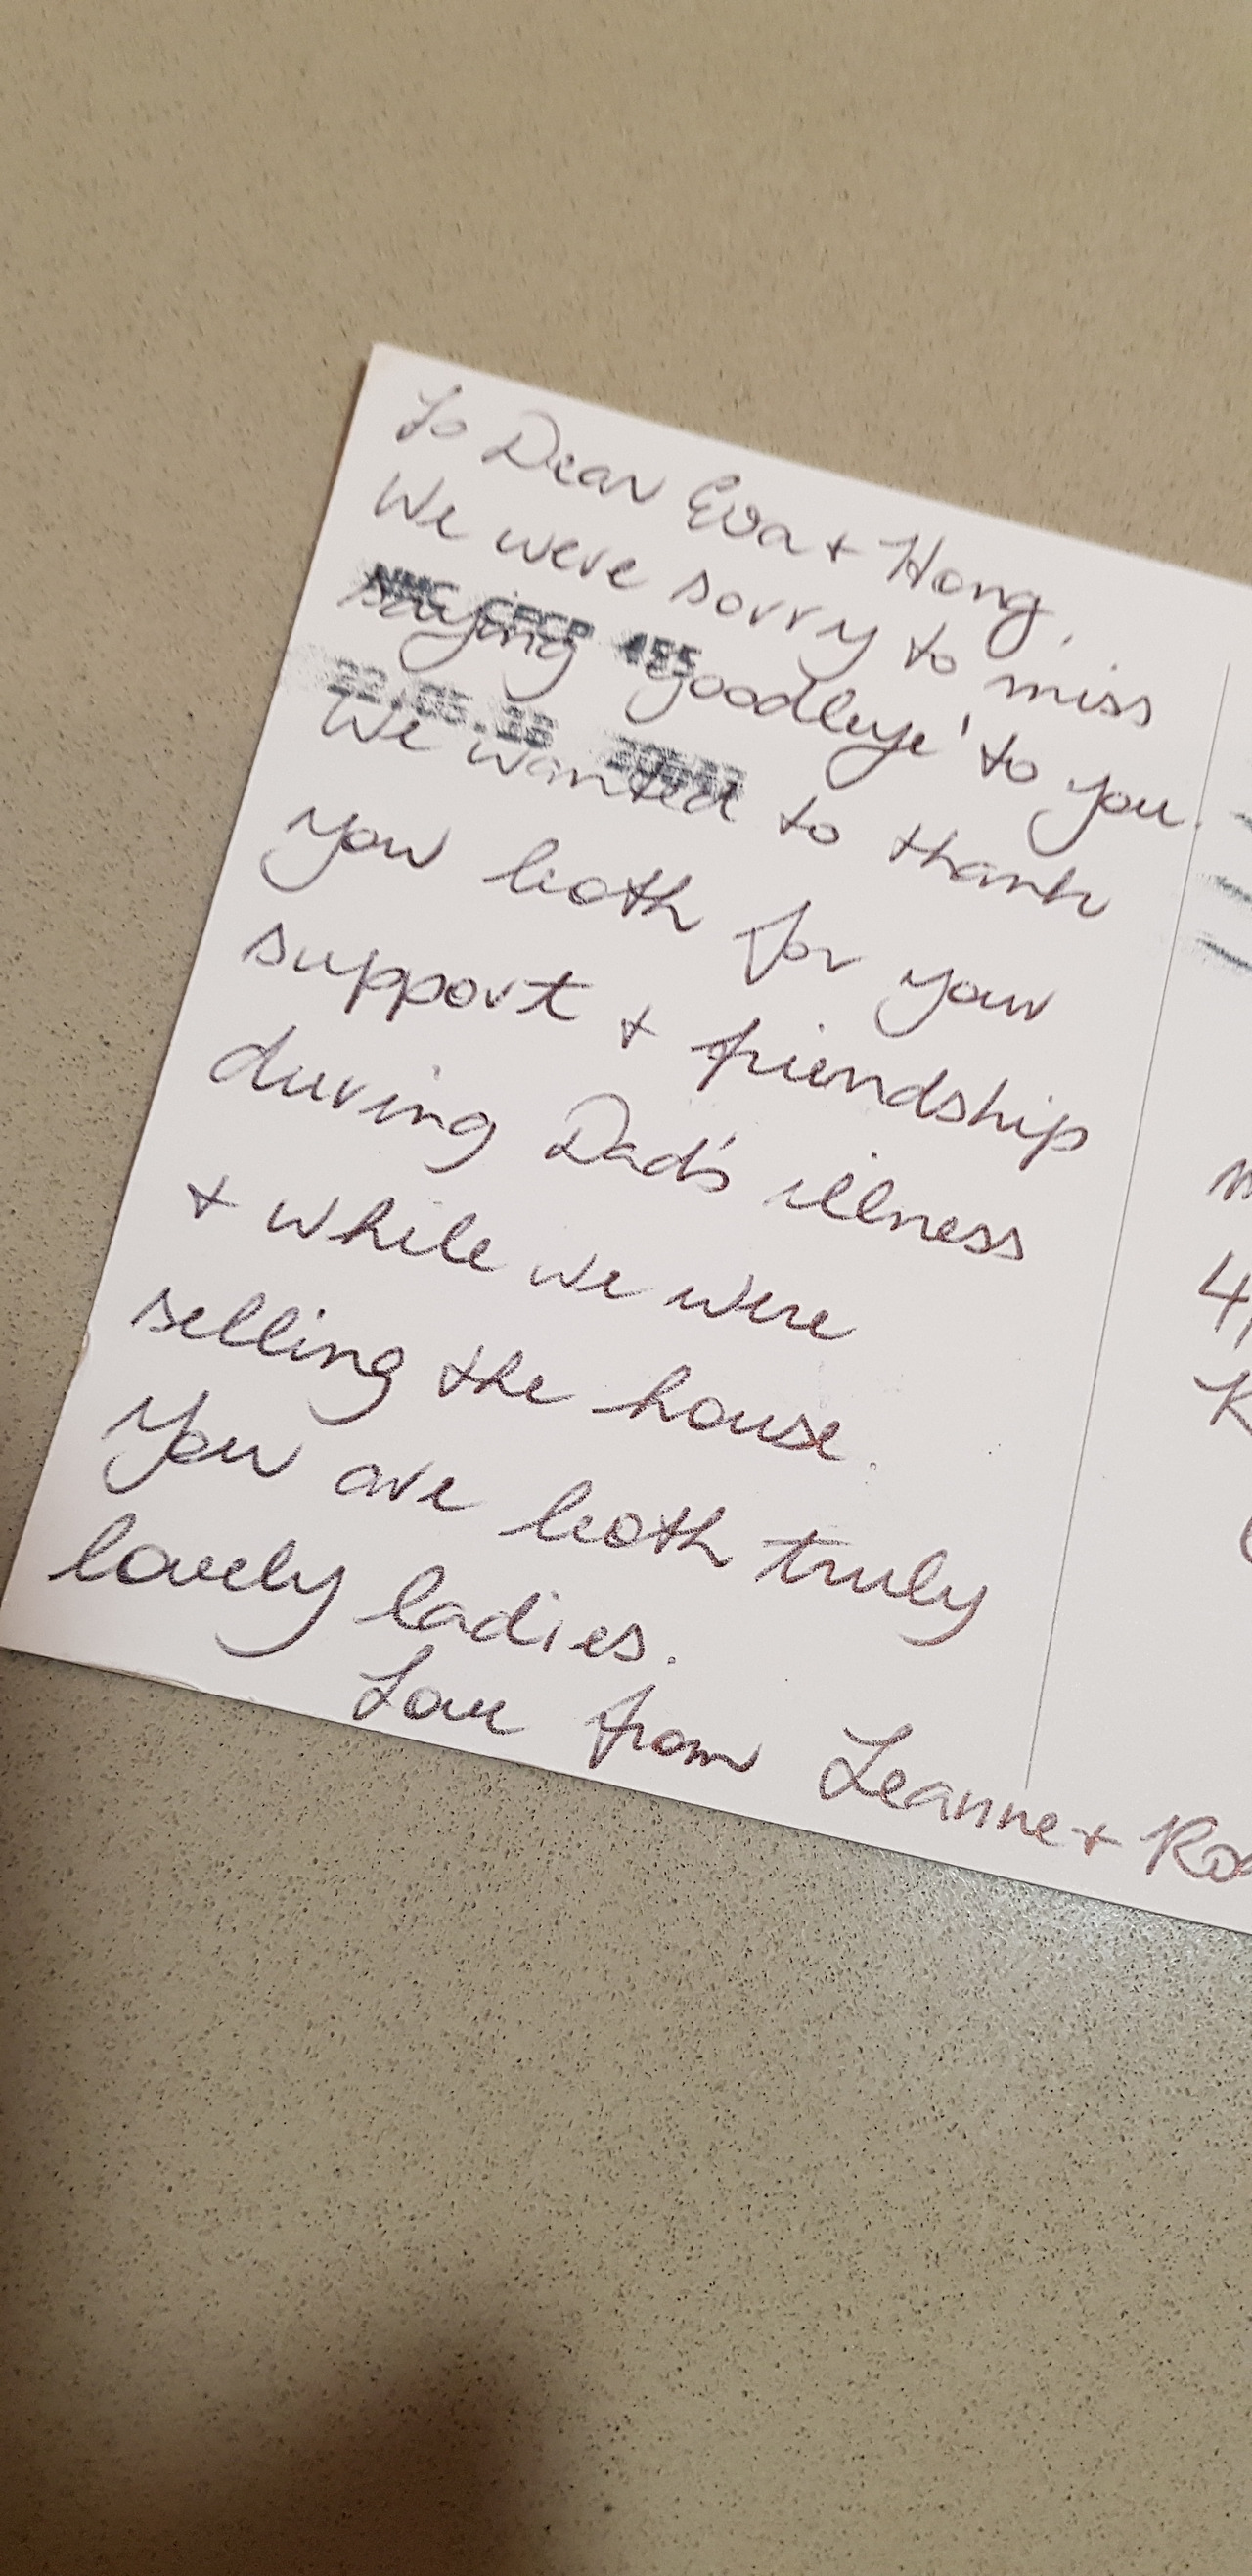 To Dear Eva + Hong,
We were sorry to miss
saying 'goodbye' to you.
We wanted to thank
you both for your
support + friendship
during Dad's illness
+ while we were
selling the house.
You are both truly
lovely ladies.
Love from Leanne +